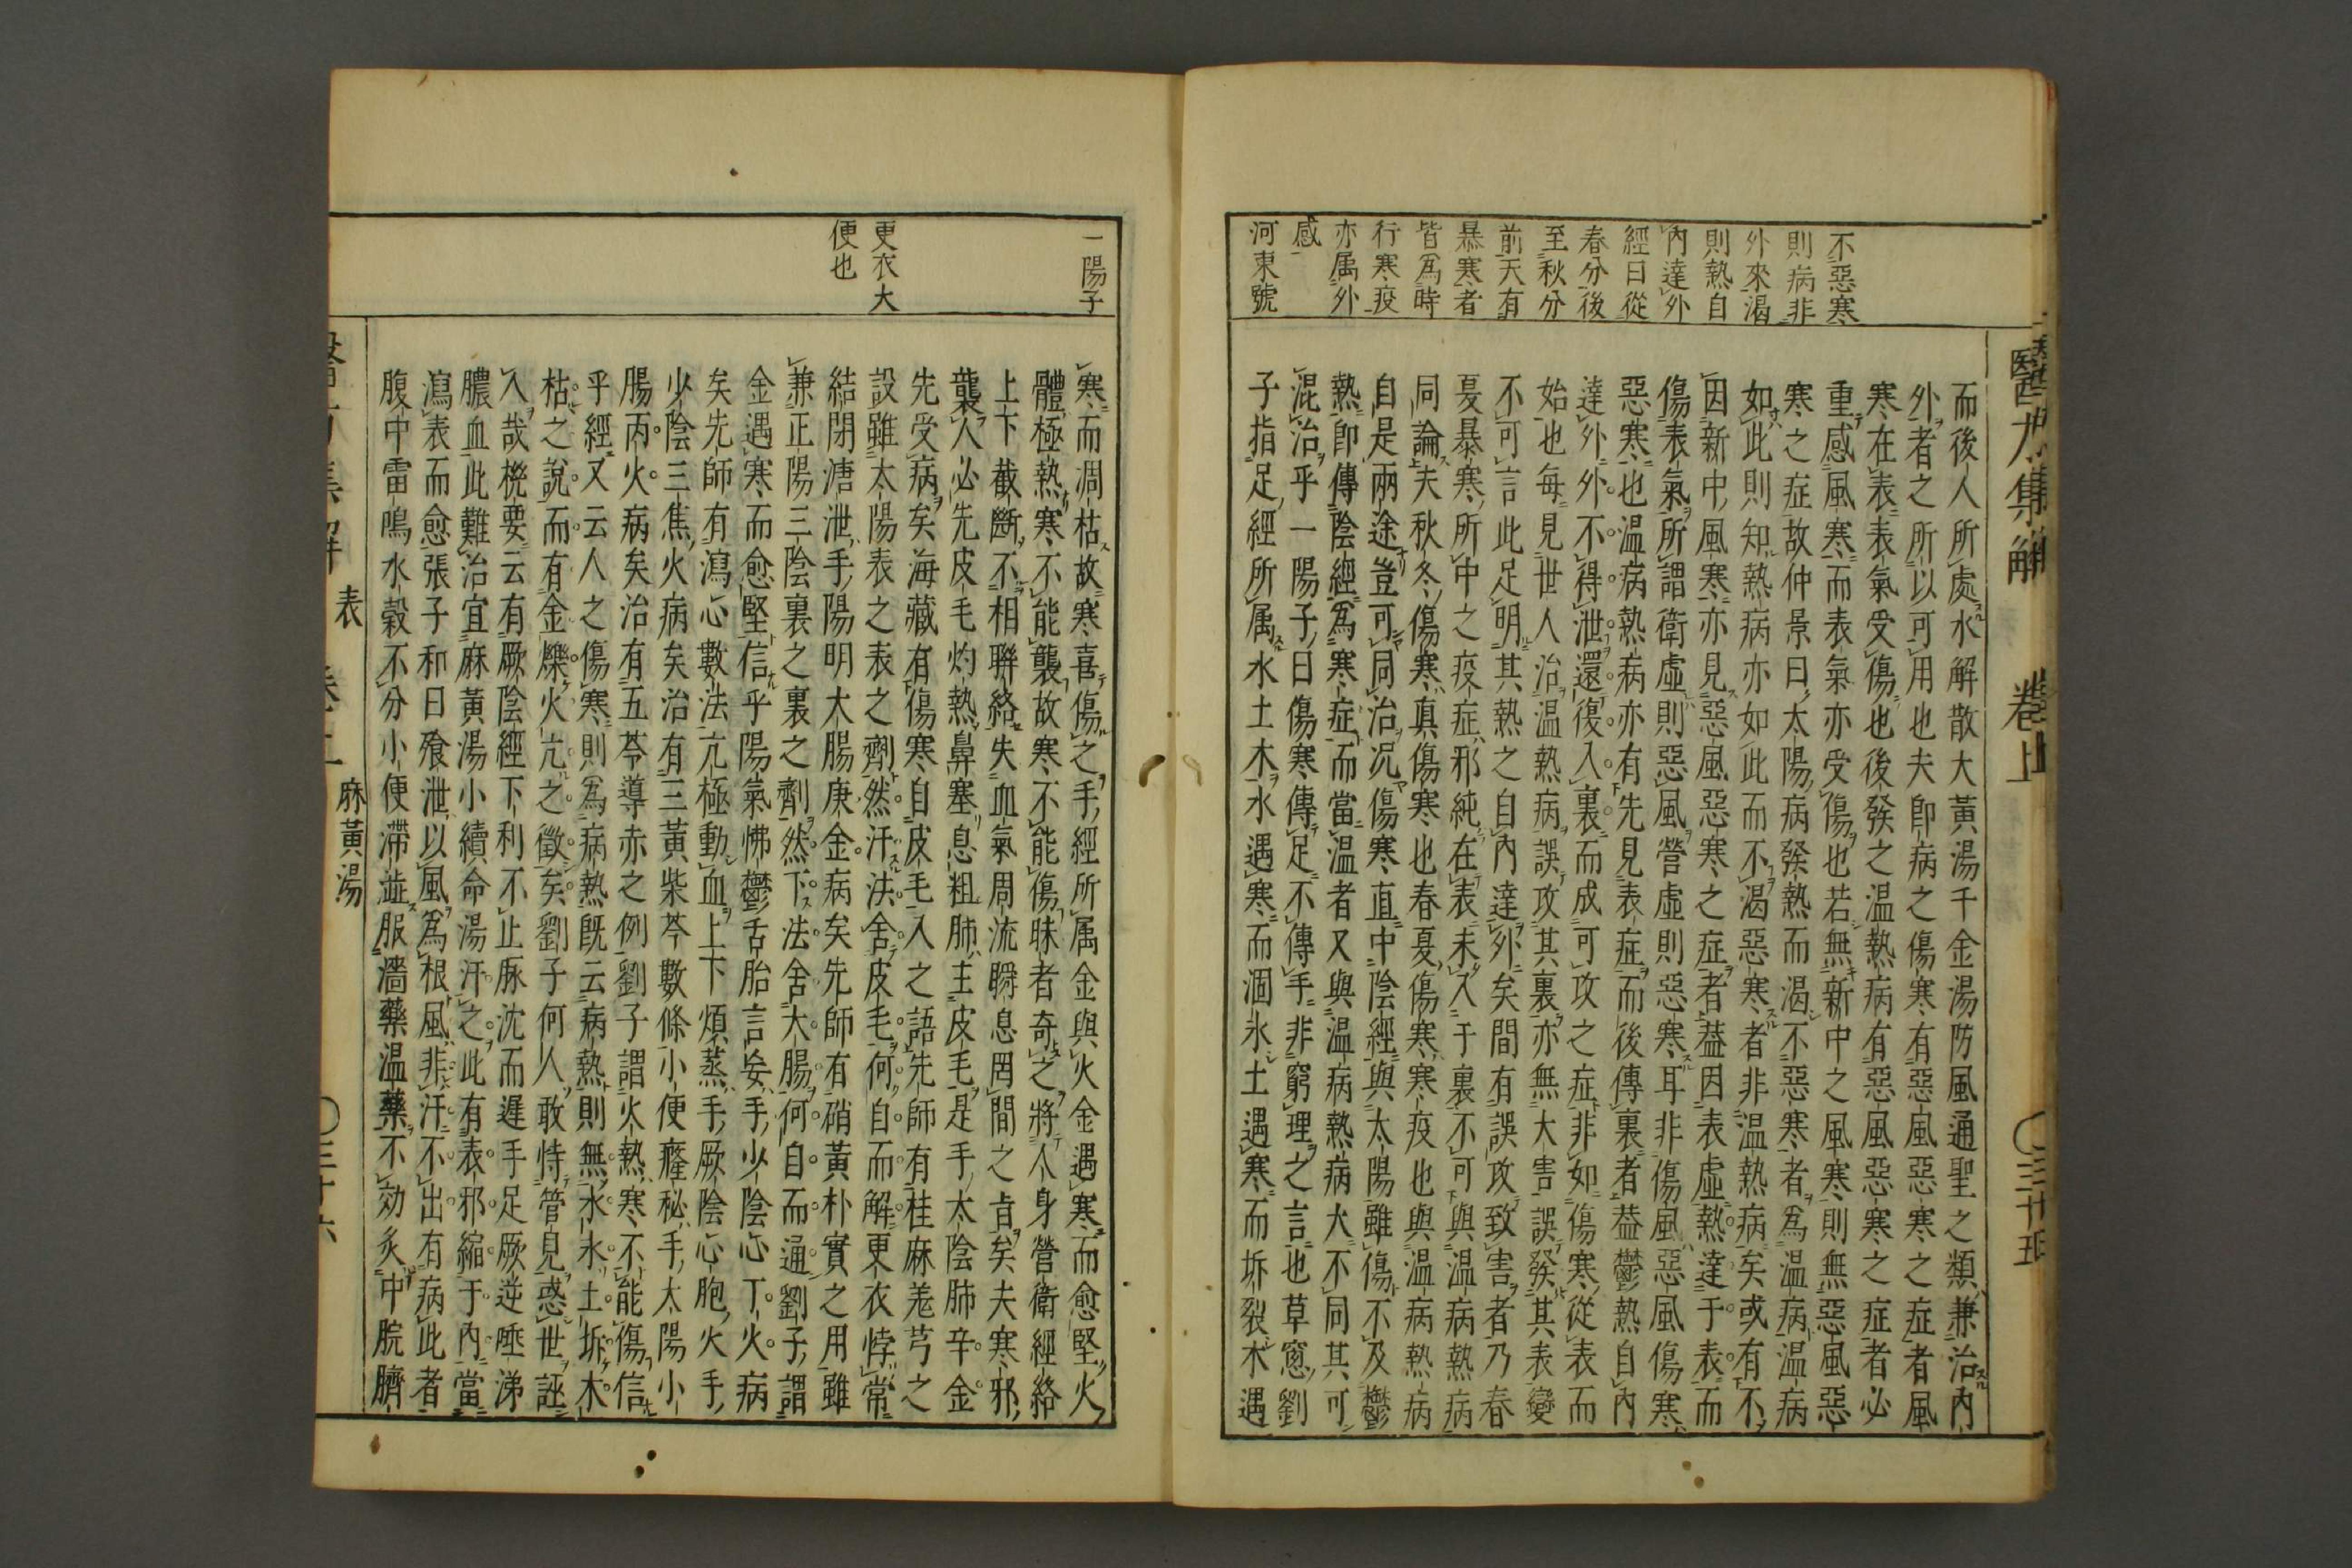 不惡寒
則病非
外來渴
則熱自
內達外
經曰從
春分後
至秋分
前天有
暴寒者
皆爲時
行寒疫
亦属外
感
河東號
而後人所處水解散大黃湯千金湯防風通聖之類兼治內
外者之所以可用也夫卽病之傷寒有惡風惡寒之症者風
寒在表表氣受傷也後發之温熱病有惡風惡寒之症者必
重感風寒而表氣亦受傷也若無新中之風寒則無惡風惡
寒之症故仲景曰太陽病發熱而渴不惡寒者爲温病温病
如此則知熱病亦如此而不渴惡寒者非温熱病矣或有不
因新中風寒亦見惡風惡寒之症者葢因表虛熱達于表而
傷表氣所謂衛虛則惡風營虛則惡寒耳非傷風惡風傷寒
惡寒也温病熱病亦有先見表症而後傳裏者葢鬱熱自內
達外外不得泄還復入裏而成可攻之症非如傷寒從表而
始也每見世人治温熱病誤攻其裏亦無大害誤發其表變
不可言此足明其熱之自內達外矣間有誤攻致害者乃春
夏暴寒所中之疫症邪純在表未入于裏不可與温病熱病
同論夫秋冬傷寒眞傷寒也春夏傷寒寒疫也與温病熱病
自是兩途豈可同治況傷寒直中陰經與太陽雖傷不及鬱
熱卽傳陰經爲寒症而當温者又與温病熱病大不同其可
混治乎一陽子曰傷寒傳足不傳手非窮理之言也草窻劉
子指足經所属水土木水遇寒而涸氷土遇寒而坼裂木遇
醫方集解
卷上
一陽子
更衣大
便也
寒而凋枯故寒喜傷之手經所属金與火金遇寒而愈堅火
體極熱寒不能襲故寒不能傷昧者奇之將人身營衛經絡
上下截斷不相聯絡失血氣周流瞬息罔間之旨矣夫寒邪
襲人必先皮毛灼熱鼻塞息粗肺主皮毛是手太陰肺辛金
先受病矣海藏有傷寒自皮毛入之語先師有桂麻羗芎之
設雖太陽表之表之劑然汗法舍皮毛何自而解更衣悖常
結閉溏泄手陽明大腸庚金病矣先師有硝黃朴實之用雖
兼正陽三陰裏之裏之劑然下法舍大腸何自而通劉子謂
金遇寒而愈堅信乎陽氣怫鬱舌胎言妄手少陰心丁火病
矣先師有瀉心數法亢極動血上下煩蒸手厥陰心胞火手
少陰三焦火病矣治有三黃柴芩數條小便癃秘手太陽小
腸丙火病矣治有五苓導赤之例劉子謂火熱寒不能傷信
乎經又云人之傷寒則爲病熱旣云病熱則無水氷土坼木
枯之說而有金爍火亢之徵矣劉子何人敢恃管見惑世誣
人哉機要云有厥陰經下利不止脉沈而遲手足厥逆唾涕
膿血此難治宜麻黃湯小續命湯汗之此有表邪縮于內當
瀉表而愈張子和曰飱泄以風爲根風非汗不出有病此者
腹中雷鳴水穀不分小便滯澁服濇藥温藥不効灸中脘臍
表
麻黃湯